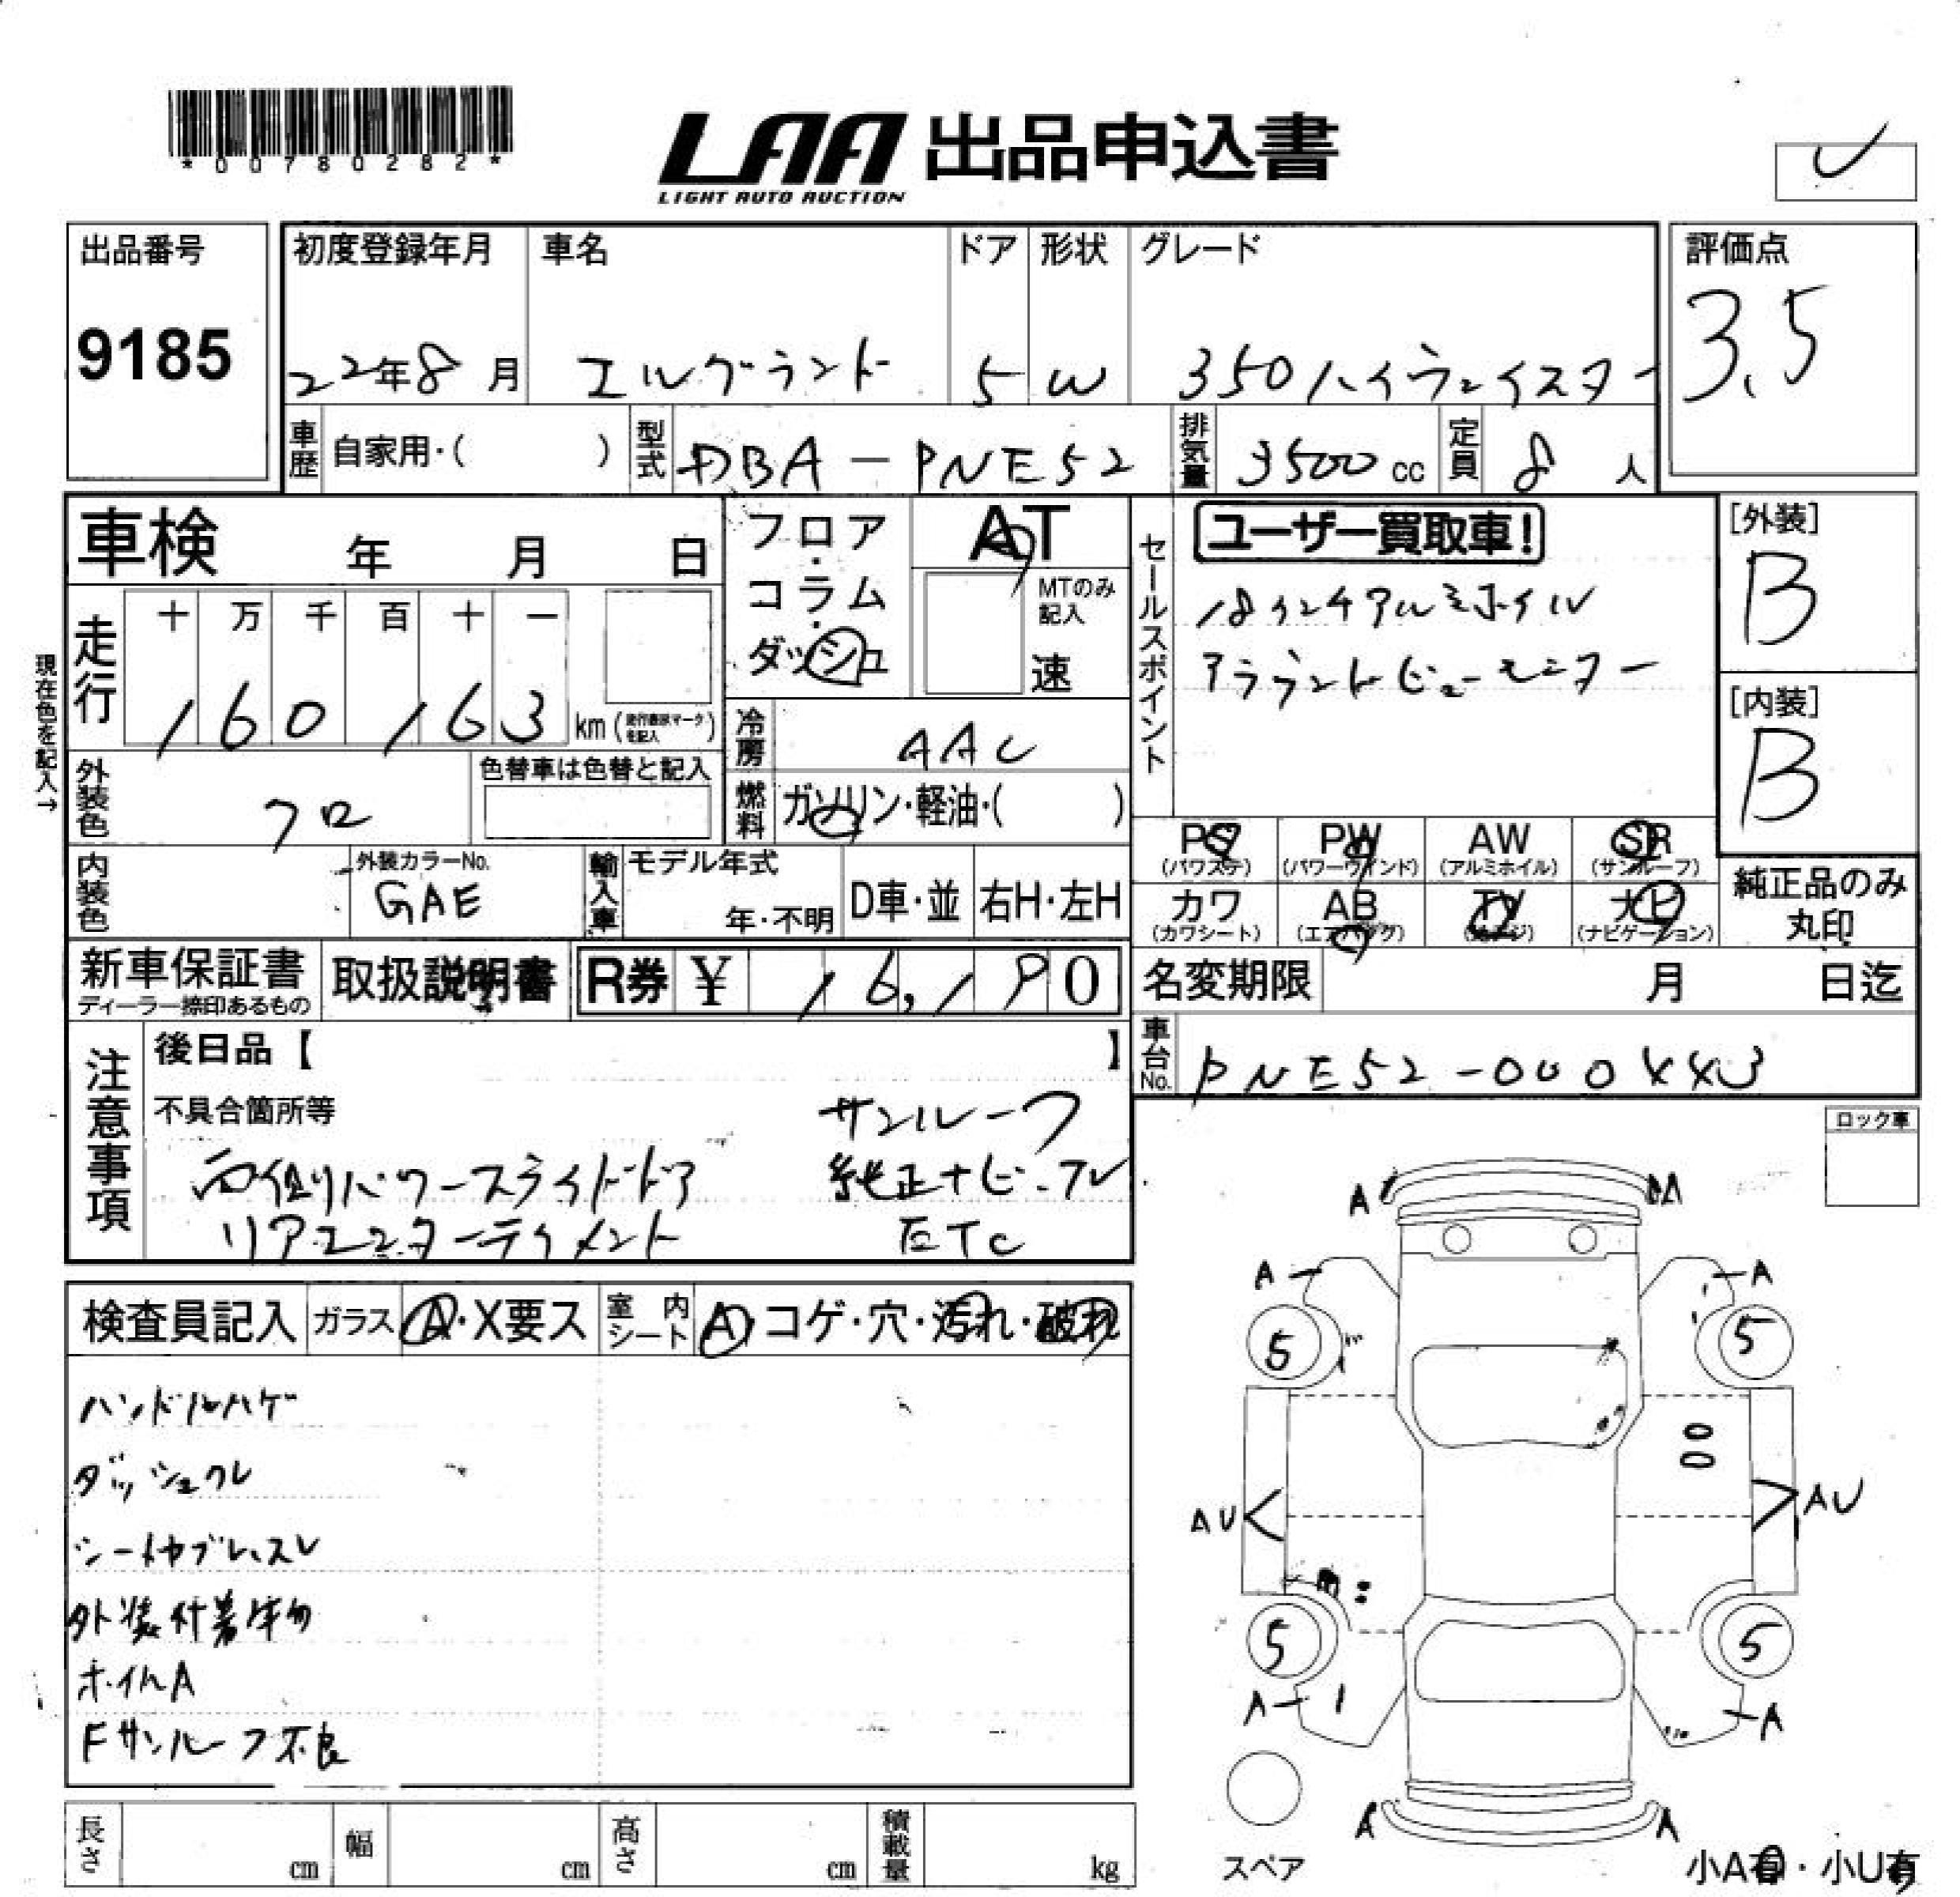 *00780282*
LAA 出品申込書
LIGHT AUTO AUCTION
出品番号
9185
初度登録年月
22年8月
車名
エルグランド
ドア
5
形状
W
グレード
350ハイウェイスター
評価点
3.5
車歴 自家用・( )
型式 DBA-PNE52
排気量 3500 cc
定員 8 人
車検 年 月 日
フロア・コラム・ダッシュ
AT
MTのみ記入
速
セールスポイント
ユーザー買取車!
18インチアルミホイル
アラウンドビューモニター
[外装]
B
[内装]
B
現在色を記入→
走行
十 万 千 百 十 一
1 6 0 1 6 3 km (走行数示マークを記入)
冷房 AAC
燃料 ガソリン・軽油・( )
外装色 クロ
色替車は色替と記入
内装色
外装カラーNo.
GAE
輸入車
モデル年式
年・不明
D車・並
右H・左H
PS (パワステ)
PW (パワーウインド)
AW (アルミホイル)
SR (サンルーフ)
カワ (カワシート)
AB (エアバッグ)
TV
ナビ (ナビゲーション)
純正品のみ丸印
新車保証書
ディーラー捺印あるもの
取扱説明書
R券 ¥ 16,190
名変期限 月 日迄
車台No. PNE52-000443
注意事項
後日品【 】
不具合箇所等
サンルーフ
両側パワースライドドア 純正ナビ・TV
リアエンターテイメント ETC
ロック車
検査員記入 ガラス A・X要ス 室内シート A・コゲ・穴・汚れ・破れ
ハンドルハゲ
ダッシュワレ
シートヤブレ、スレ
外装付着物
ホイルA
Fサンルーフ不良
A A
A A
5 5
AU AU
5 5
A A
A A
スペア
小A有・小U有
長さ cm
幅 cm
高さ cm
積載量 kg